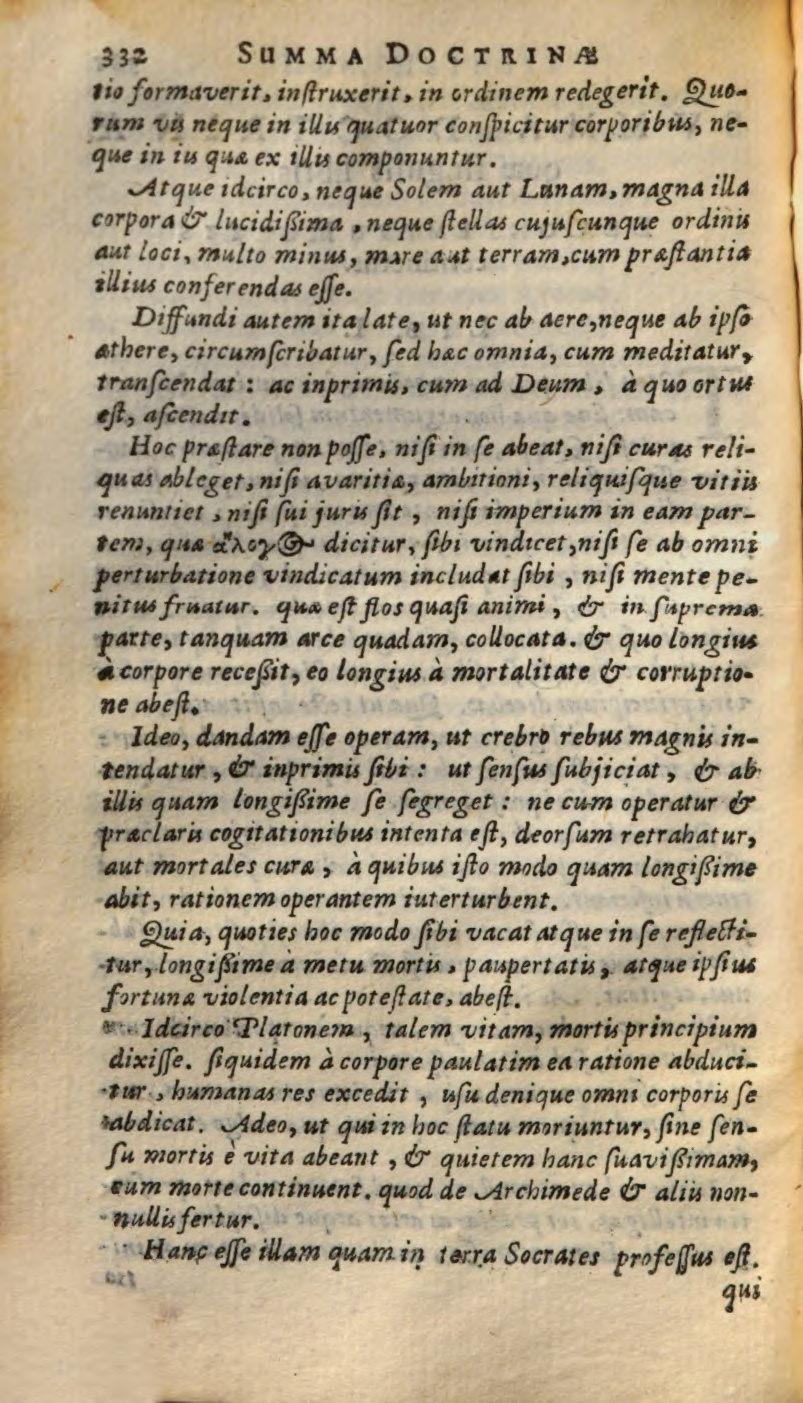 332 SUMMA DOCTRINÆ
tio formaverit, inſtruxerit, in ordinem redegerit. Quo-
rum vis neque in illis quatuor conſpicitur corporibus, ne-
que in iis quæ ex illis componuntur.
Atque idcirco, neque Solem aut Lunam, magna illa
corpora & lucidißima, neque ſtellas cujuſcunque ordinis
aut loci, multo minus, mare aut terram, cum præſtantia
illius conferendas eſſe.
Diffundi autem ita late, ut nec ab aere, neque ab ipſo
æthere, circumſcribatur, ſed hæc omnia, cum meditatur,
tranſcendat : ac inprimis, cum ad Deum, à quo ortus
eſt, aſcendit.
Hoc præſtare non poſſe, niſi in ſe abeat, niſi curas reli-
quas ableget, niſi avaritiæ, ambitioni, reliquiſque vitiis
renuntiet, niſi ſui juris ſit, niſi imperium in eam par-
tem, quæ ἄλογος dicitur, ſibi vindicet, niſi ſe ab omni
perturbatione vindicatum includat ſibi, niſi mente pe-
nitus fruatur. quæ eſt flos quaſi animi, & in ſuprema
parte, tanquam arce quadam, collocata. & quo longius
à corpore receßit, eo longius à mortalitate & corruptio-
ne abeſt.
Ideo, dandam eſſe operam, ut crebro rebus magnis in-
tendatur, & inprimis ſibi : ut ſenſus ſubjiciat, & ab
illis quam longißime ſe ſegreget : ne cum operatur &
præclaris cogitationibus intenta eſt, deorſum retrahatur,
aut mortales curæ, à quibus iſto modo quam longißime
abit, rationem operantem iuterturbent.
Quia, quoties hoc modo ſibi vacat atque in ſe reflecti-
tur, longißime à metu mortis, paupertatis, atque ipſius
fortunæ violentia ac poteſtate, abeſt.
Idcirco Platonem, talem vitam, mortis principium
dixiſſe. ſiquidem à corpore paulatim ea ratione abduci-
tur, humanas res excedit, uſu denique omni corporis ſe
abdicat. Adeo, ut qui in hoc ſtatu moriuntur, ſine ſen-
ſu mortis è vita abeant, & quietem hanc ſuavißimam,
cum morte continuent. quod de Archimede & aliis non-
nullis fertur.
Hanc eſſe illam quam in terra Socrates profeſſus eſt.
qui